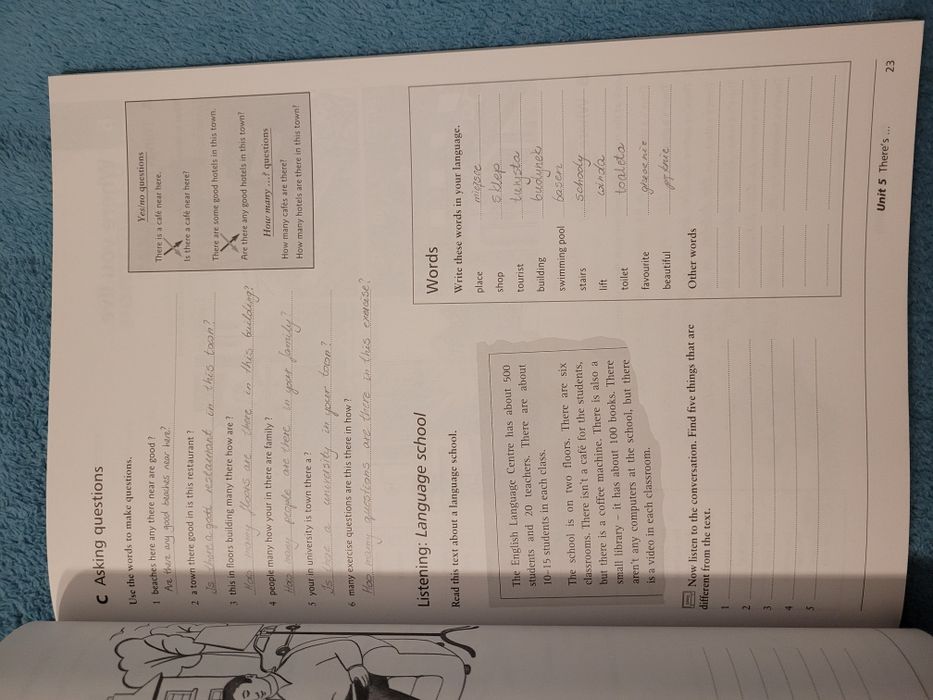 C Asking questions
Use the words to make questions.
1 beaches here any there near are good ?
Are there any good beaches near here?
2 a town there good in is this restaurant ?
Is there a good restaurant in this town?
3 this in floors building many there how are ?
How many floors are there in this building?
4 people many how your in there are family ?
How many people are there in your family?
5 your in university is town there a ?
Is there a university in your town?
6 many exercise questions are this there in how ?
How many questions are there in this exercise?
Yes/no questions
There is a café near here.
Is there a café near here?
There are some good hotels in this town.
Are there any good hotels in this town?
How many ...? questions
How many cafés are there?
How many hotels are there in this town?
Listening: Language school
Read this text about a language school.
The English Language Centre has about 500
students and 20 teachers. There are about
10–15 students in each class.
The school is on two floors. There are six
classrooms. There isn't a café for the students,
but there is a coffee machine. There is also a
small library – it has about 100 books. There
aren't any computers at the school, but there
is a video in each classroom.
Now listen to the conversation. Find five things that are
different from the text.
1
2
3
4
5
Words
Write these words in your language.
place miejsce
shop sklep
tourist turysta
building budynek
swimming pool basen
stairs schody
lift winda
toilet toaleta
favourite
beautiful
Other words
Unit 5 There's ... 23